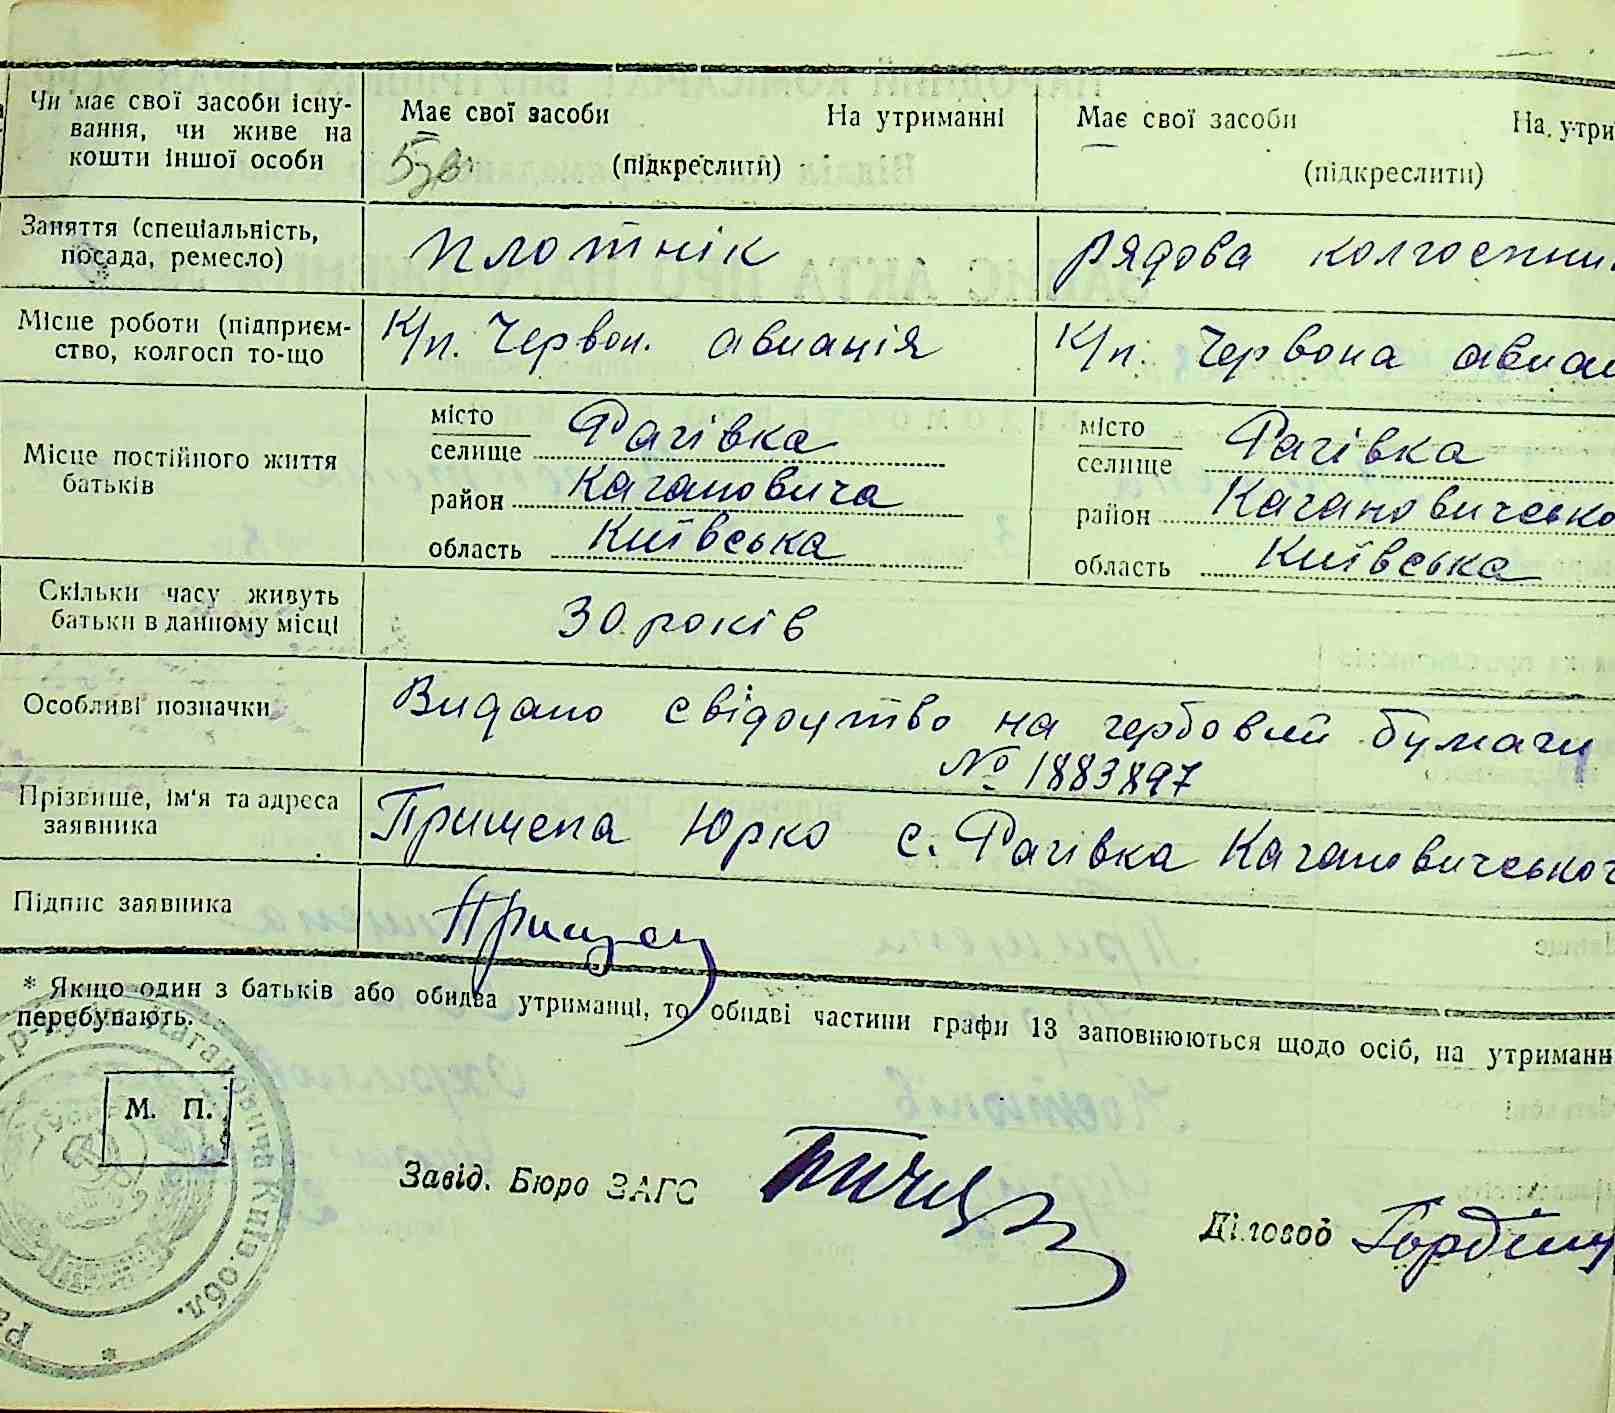 Чи має свої засоби існу-
вання, чи живе на
кошти іншої особи
Має свої засоби На утриманні
(підкреслити)
Має свої засоби На утри
(підкреслити)
Заняття (спеціальність,
посада, ремесло)
плотнік
рядова колгоспни
Місце роботи (підприєм-
ство, колгосп то-що
К/п. Червон. авиація
К/п. Червона авиац
Місце постійного життя
батьків
місто
селище Рагівка
район Кагановича
область Київська
місто
селище Рагівка
район Кагановичсько
область Київська
Скільки часу живуть
батьки в данному місці
30 років
Особливі позначки
Видано свідоцтво на гербовий бумаги
№ 1883897
Прізвище, ім'я та адреса
заявника
Прищепа Юрко с. Рагівка Кагановичського
Підпис заявника
* Якщо один з батьків або обидва утриманці, то обидві частини графи 13 заповнюються щодо осіб, на утриманн
перебувають.
М. П.
Кагановича Київ. обл.
Завід. Бюро ЗАГС
Діловод